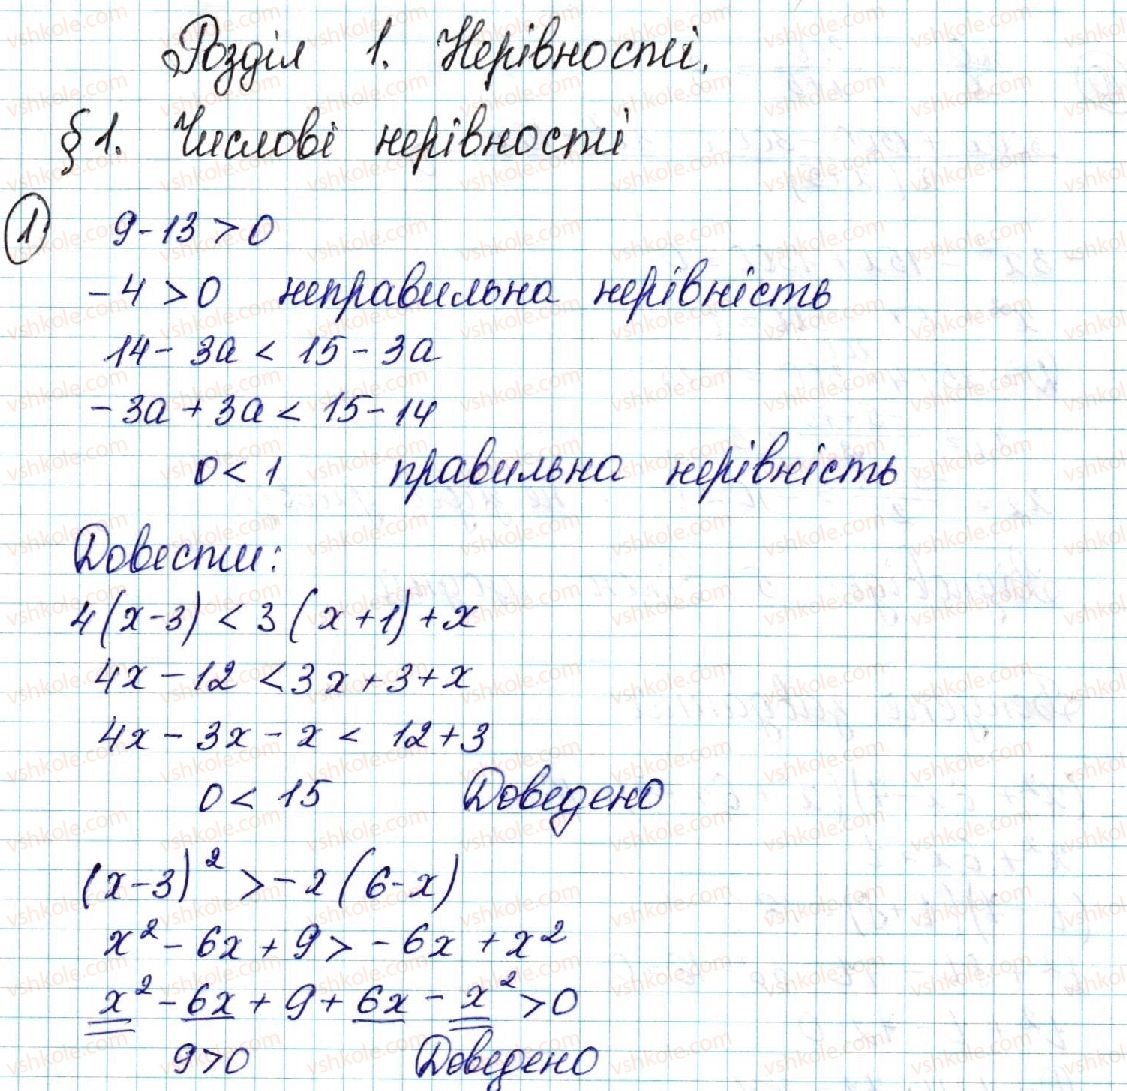 Розділ 1. Нерівності.
§1. Числові нерівності
1 9-13>0
-4>0 неправильна нерівність
14-3a<15-3a
-3a+3a<15-14
0<1 правильна нерівність
Довести:
4(x-3)<3(x+1)+x
4x-12<3x+3+x
4x-3x-x<12+3
0<15 Доведено
(x-3)²>-x(6-x)
x²-6x+9>-6x+x²
x²-6x+9+6x-x²>0
9>0 Доведено